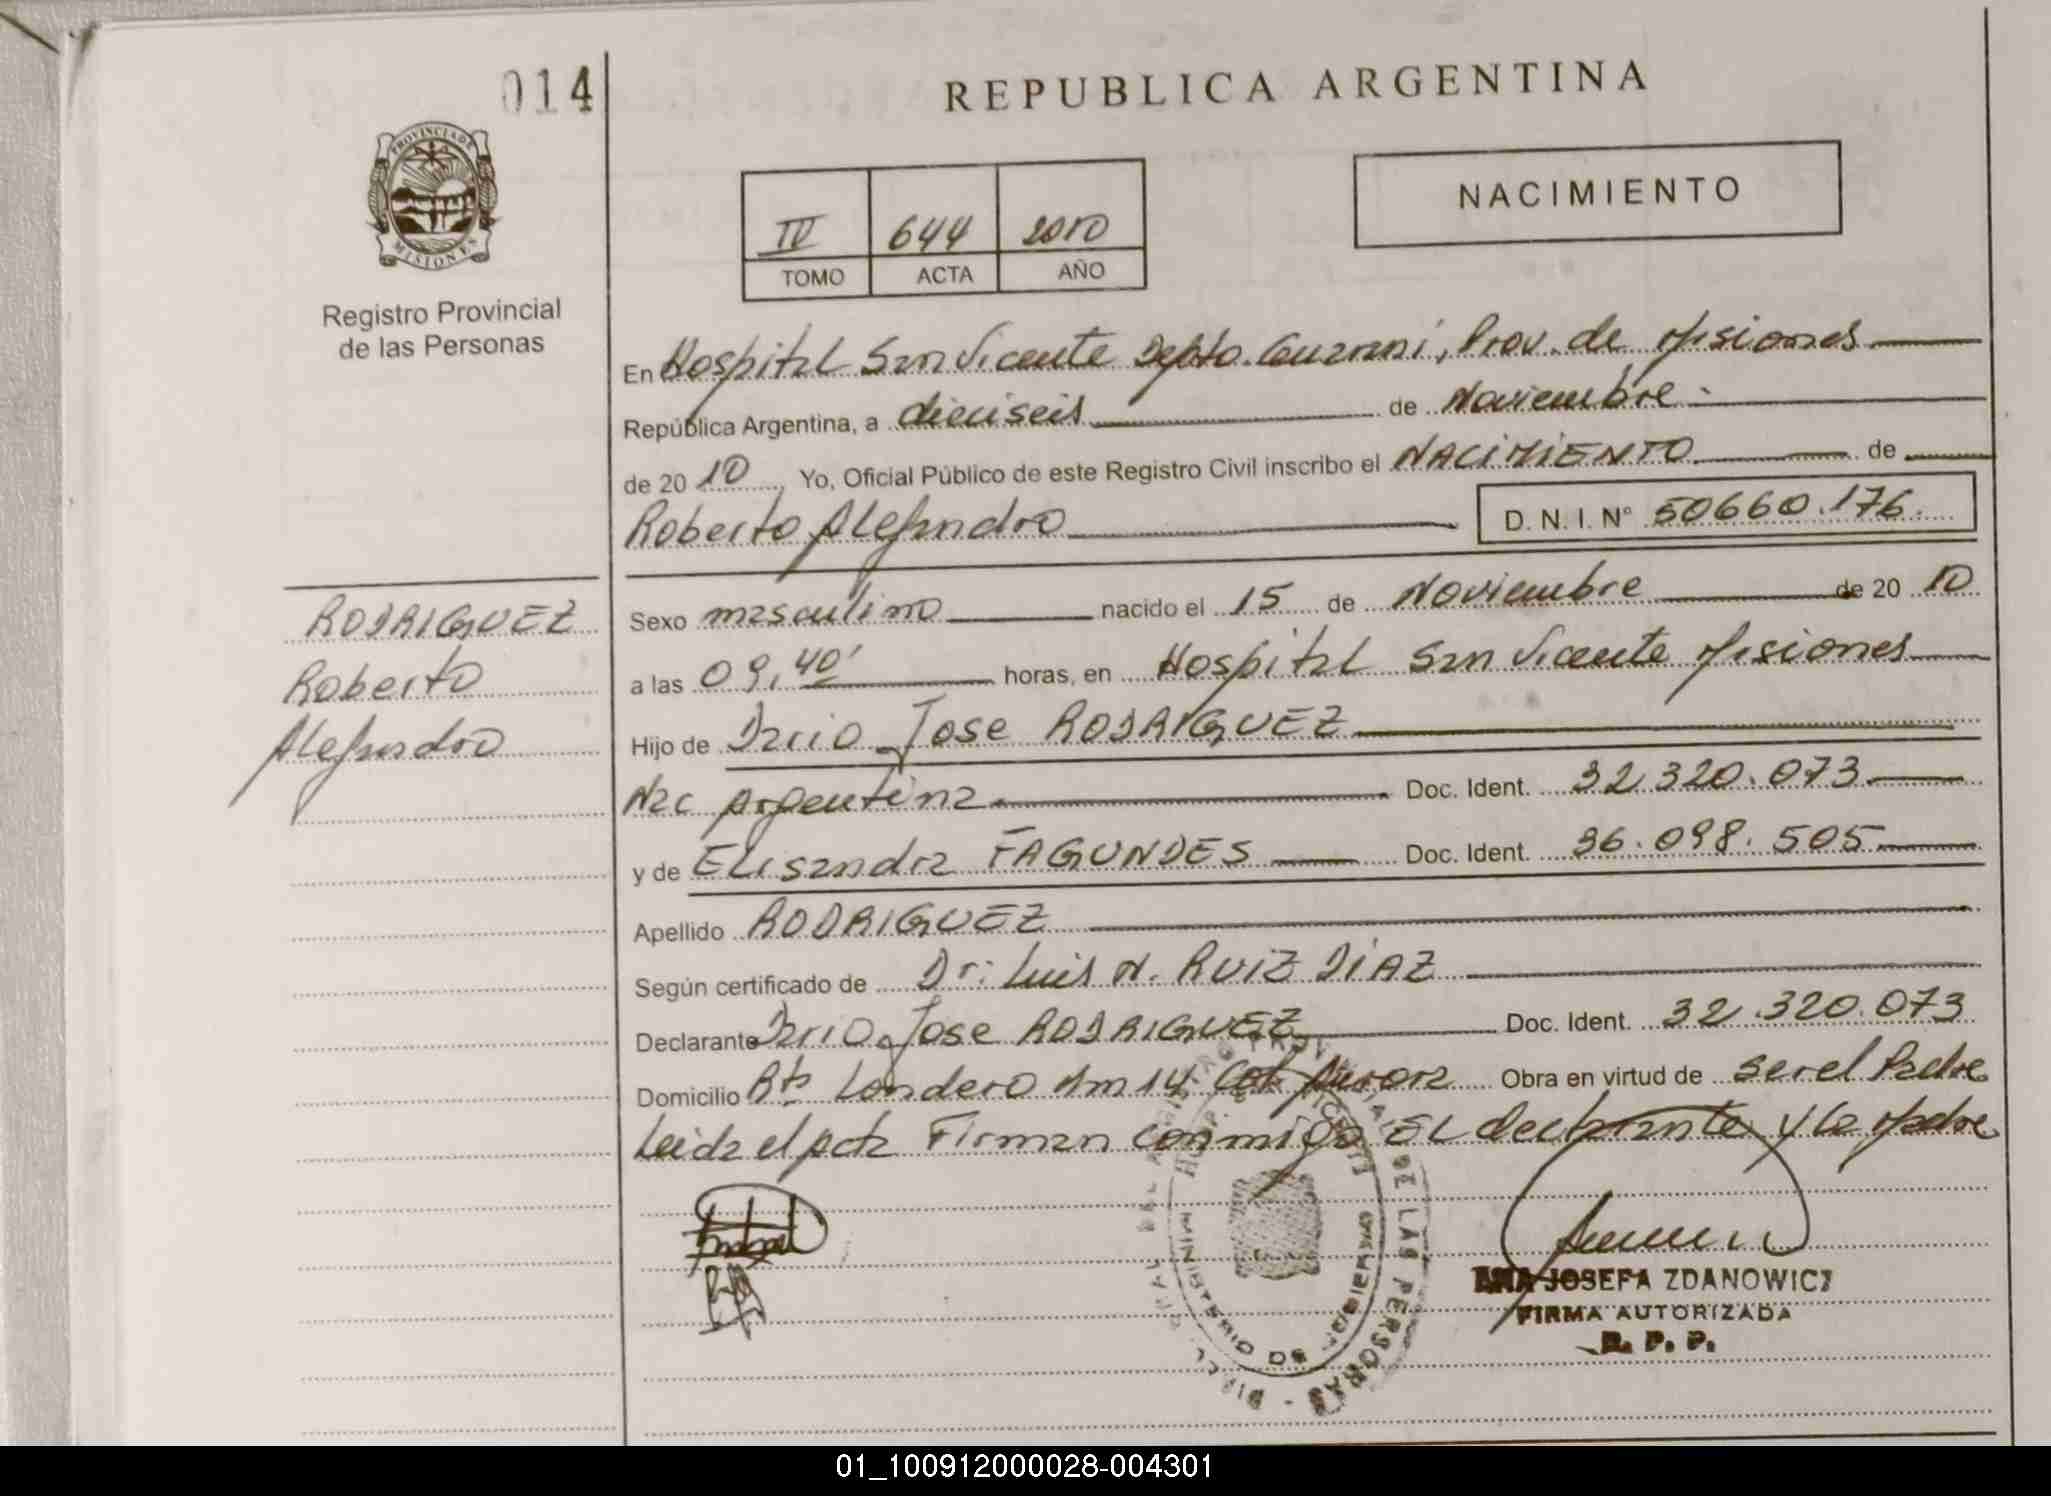 014
REPUBLICA ARGENTINA
PROVINCIA DE
MISIONES
Registro Provincial
de las Personas
NACIMIENTO
IV 644 2010
TOMO ACTA AÑO
En Hospital San Vicente Depto. Guarani, Prov. de Misiones
República Argentina, a dieciseis de Noviembre
de 2010 Yo, Oficial Público de este Registro Civil inscribo el NACIMIENTO de
Roberto Alejandro D. N. I. N° 50660.176.
RODRIGUEZ
Roberto
Alejandro
Sexo masculino nacido el 15 de Noviembre de 2010
a las 09,40' horas, en Hospital San Vicente Misiones
Hijo de Dario Jose RODRIGUEZ
Nac Argentina Doc. Ident. 32.320.073
y de Elisandra FAGUNDES Doc. Ident. 36.098.505
Apellido RODRIGUEZ
Según certificado de Dr: Luis N. RUIZ DIAZ
Declarante Dario Jose RODRIGUEZ Doc. Ident. 32.320.073
Domicilio Londero Km 14 Col Aurora Obra en virtud de ser el Padre
Leida el Acta Firman conmigo El declarante y la Madre
ANA JOSEFA ZDANOWICZ
FIRMA AUTORIZADA
R. P. P.
MINISTERIO DE GOBIERNO
DE LAS PERSONAS
01_100912000028-004301